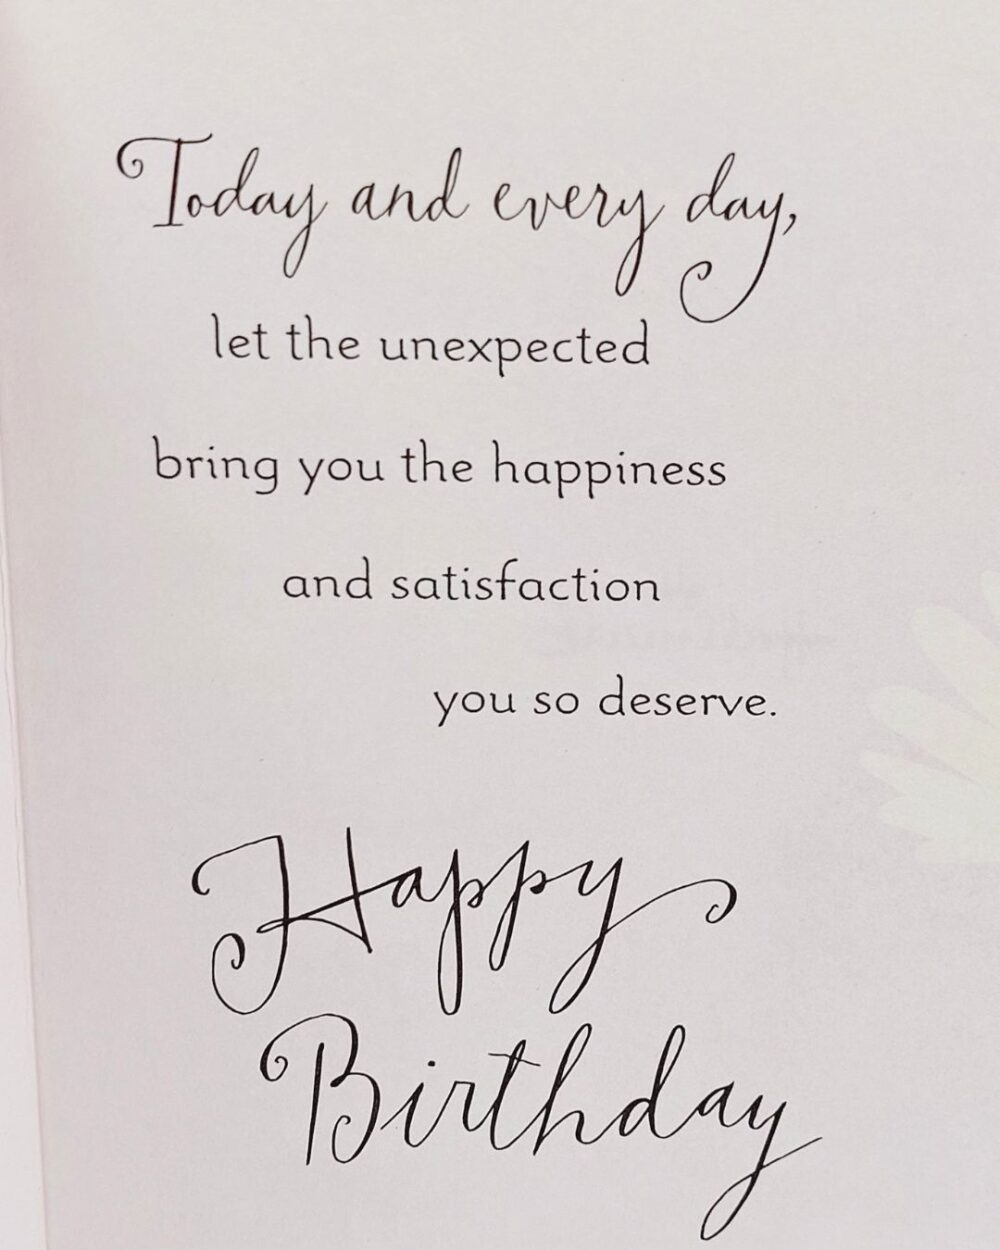 Today and every day,
let the unexpected
bring you the happiness
and satisfaction
you so deserve.
Happy
Birthday